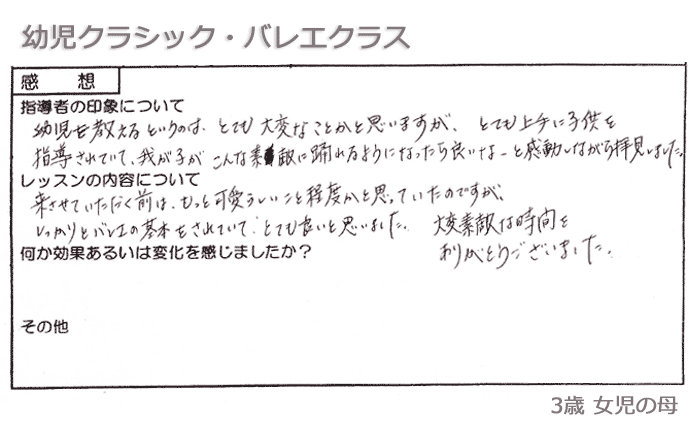 幼児クラシック・バレエクラス
感　想
指導者の印象について
幼児を教えるというのは、とても大変なことかと思いますが、とても上手に子供を
指導されていて、我が子がこんな素敵に踊れるようになったら良いなーと感動しながら拝見しました。
レッスンの内容について
来させていただく前は、もっと可愛らしいこと程度かと思っていたのですが、
しっかりとバレエの基本をされていて、とても良いと思いました。 大変素敵な時間を
ありがとうございました。
何か効果あるいは変化を感じましたか？
その他
3歳 女児の母